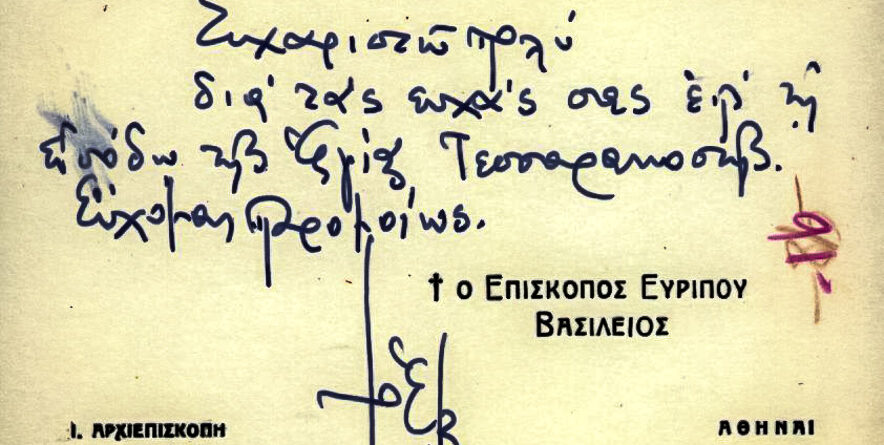 Εὐχαριστῶ πολύ
διά τάς εὐχάς σας ἐπί τῇ
εἰσόδῳ τῆς Ἁγίας Τεσσαρακοστῆς.
Εὔχομαι παρομοίως.
† Ο ΕΠΙΣΚΟΠΟΣ ΕΥΡΙΠΟΥ
ΒΑΣΙΛΕΙΟΣ
Ι. ΑΡΧΙΕΠΙΣΚΟΠΗ
ΑΘΗΝΑΙ